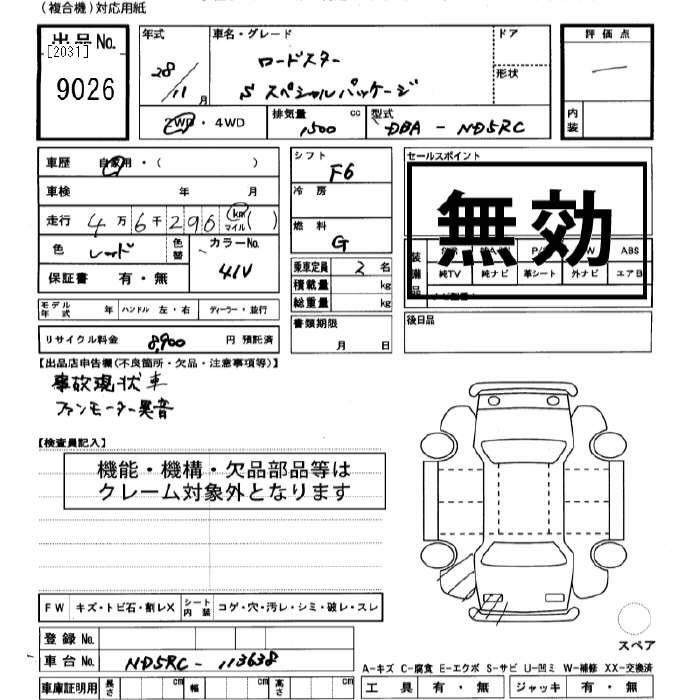 (複合機)対応用紙
出品No.
[2031]
9026
年式 車名・グレード ドア 評価点
28/11月 ロードスター
S スペシャルパッケージ 形状 一
2WD・4WD 排気量 1,500 cc 型式 DBA - ND5RC 内装
車歴 自家用・( )
車検 年 月
走行 4万6千296 km マイル ( )
色 レッド 色替 カラーNo. 41V
保証書 有・無
シフト F6
冷房
燃料 G
乗車定員 2 名
積載量 kg
総重量 kg
セールスポイント
無効
装備品 ABS
純TV 純ナビ 革シート 外ナビ エアB
モデル年式 年 ハンドル 左・右 ディーラー・並行
リサイクル料金 8,900 円 預託済
書類期限 月 日
後日品
【出品店申告欄(不良箇所・欠品・注意事項等)】
事故現状車
ファンモーター異音
【検査員記入】
機能・機構・欠品部品等は
クレーム対象外となります
FW キズ・トビ石・割レX シート内装 コゲ・穴・汚レ・シミ・破レ・スレ
登録No.
車台No. ND5RC - 113638
車庫証明用 長さ cm 幅 cm 高さ cm
スペア
A-キズ C-腐食 E-エクボ S-サビ U-凹ミ W-補修 XX-交換済
工具 有・無 ジャッキ 有・無